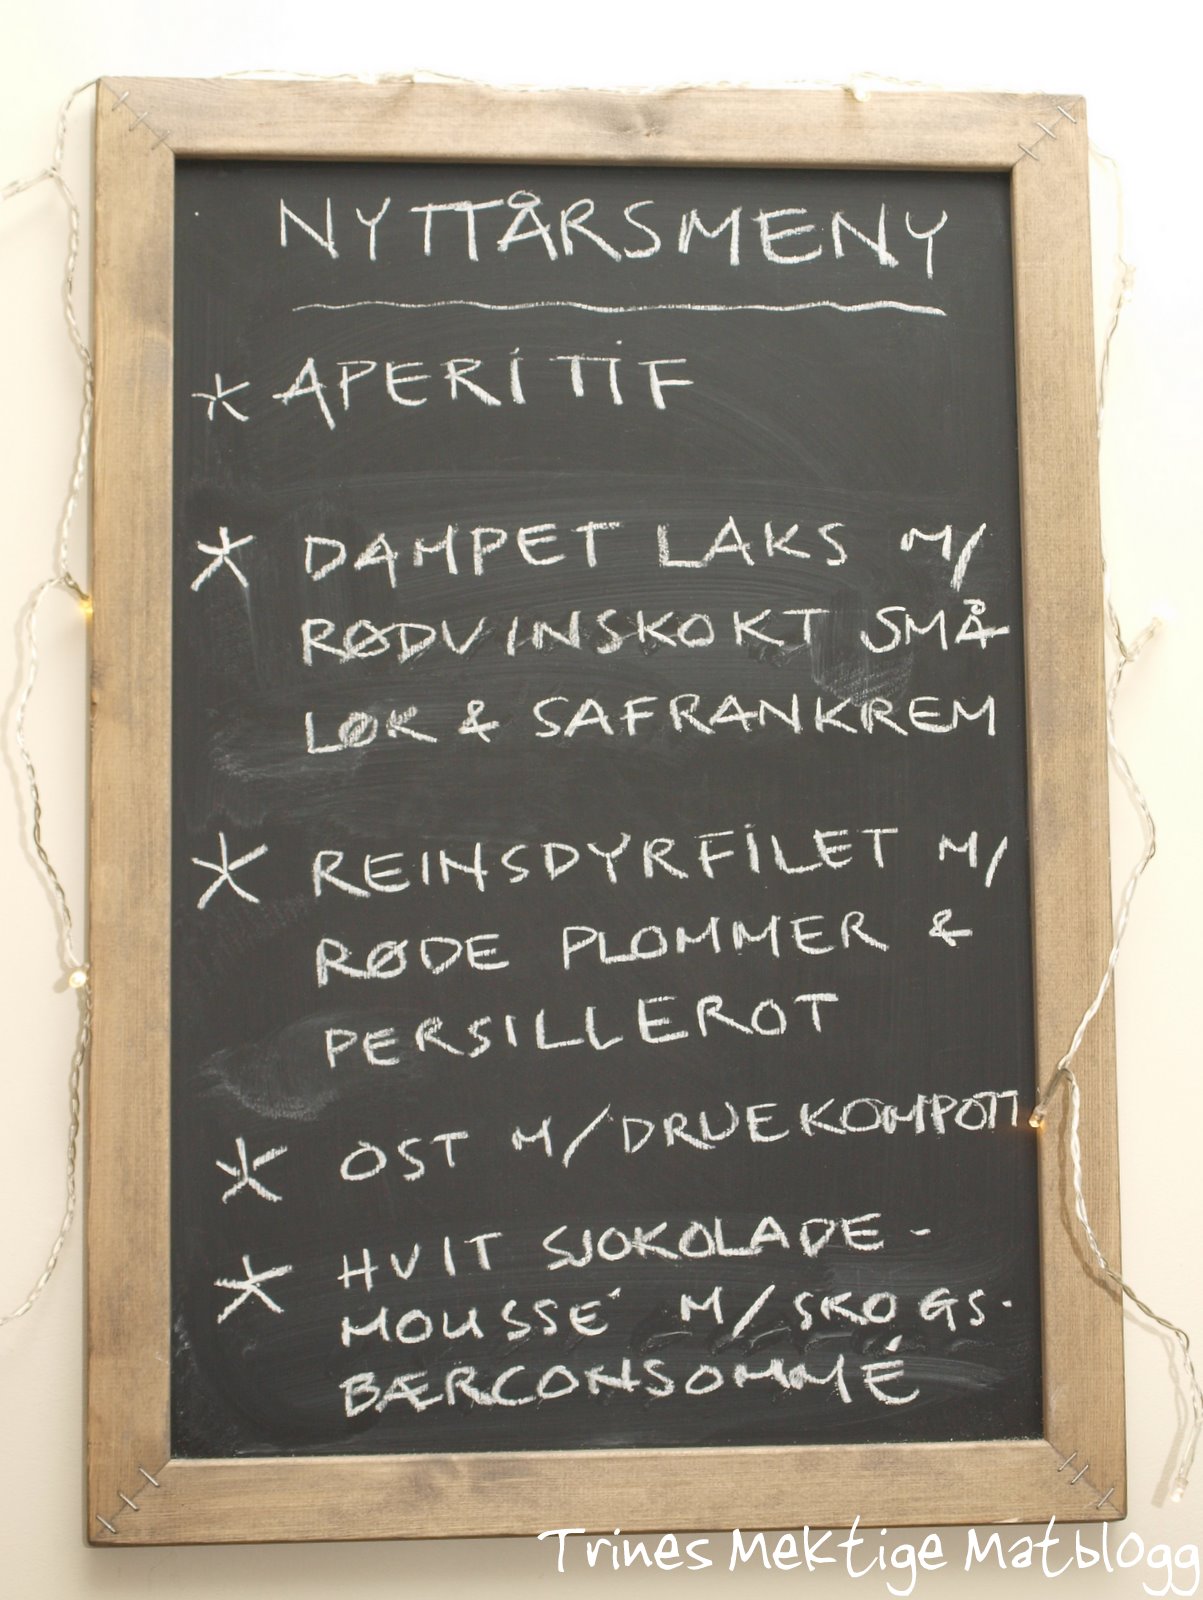 NYTTÅRSMENY
* APERITIF
* DAMPET LAKS M/
RØDVINSKOKT SMÅ
LØK & SAFRANKREM
* REINSDYRFILET M/
RØDE PLOMMER &
PERSILLEROT
* OST M/DRUEKOMPOTT
* HVIT SJOKOLADE-
MOUSSÉ M/SKOGS-
BÆRCONSOMMÉ
Trines Mektige Matblogg